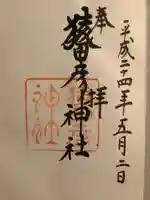 平成二十四年五月二日
奉拝
猿田彦神社